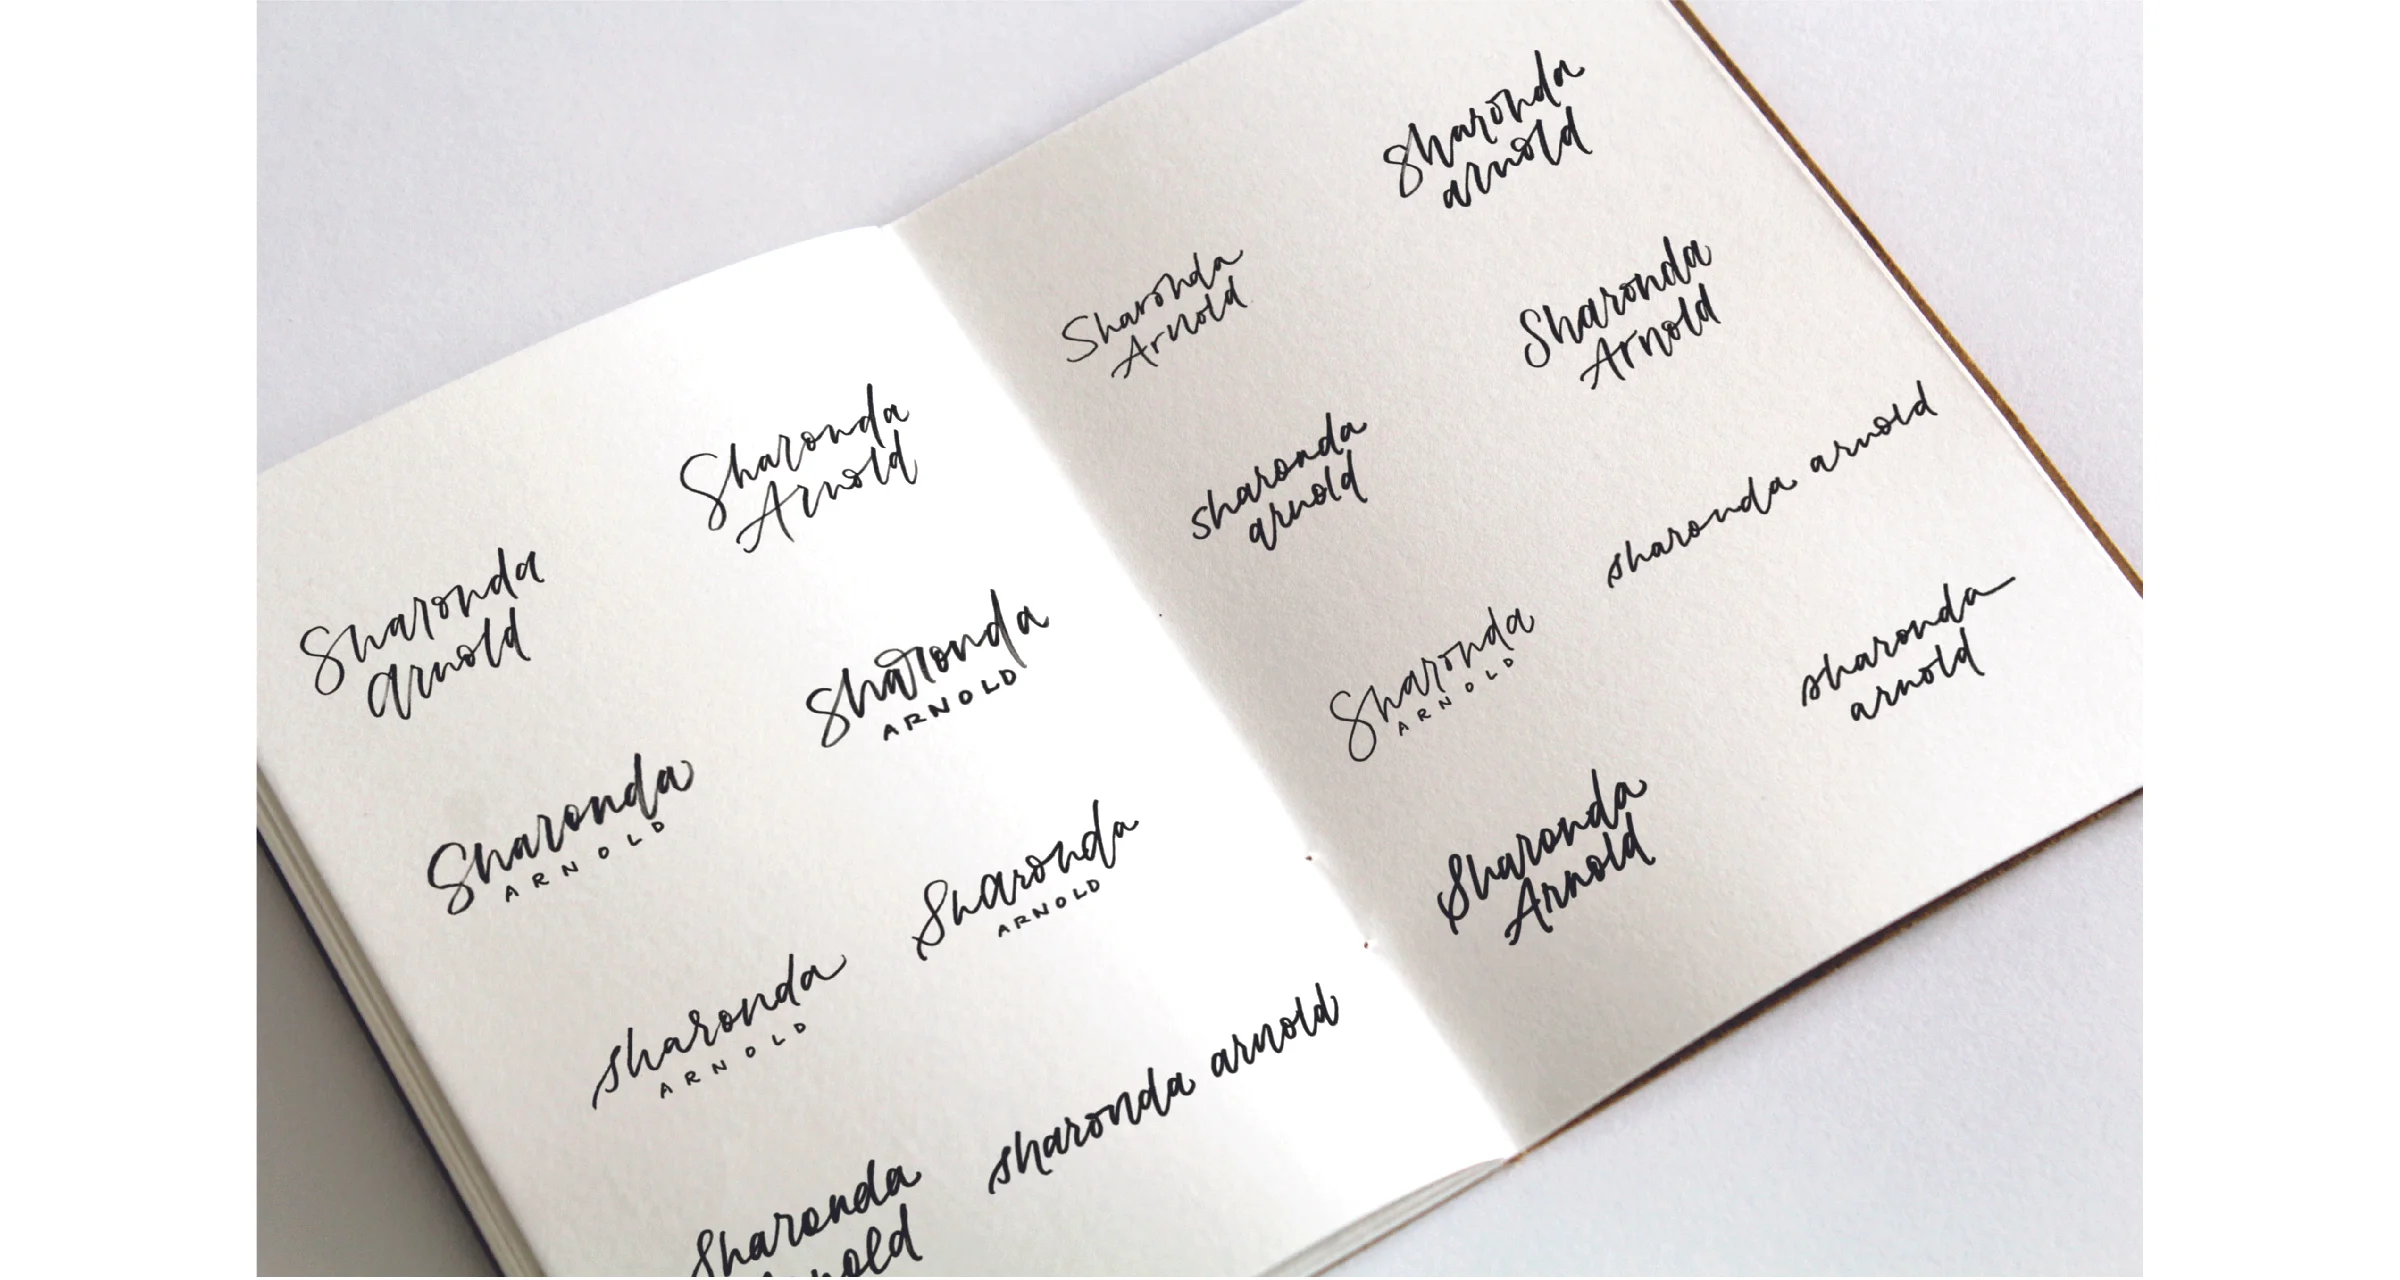 Sharonda
arnold
Sharonda
Arnold
Sharonda
ARNOLD
Sharonda
ARNOLD
sharonda
ARNOLD
Sharonda
ARNOLD
Sharonda
nold
sharonda arnold
Sharonda
Arnold
Sharonda
arnold
sharonda
arnold
Sharonda
Arnold
Sharonda
ARNOLD
sharonda arnold
Sharonda
Arnold
sharonda
arnold